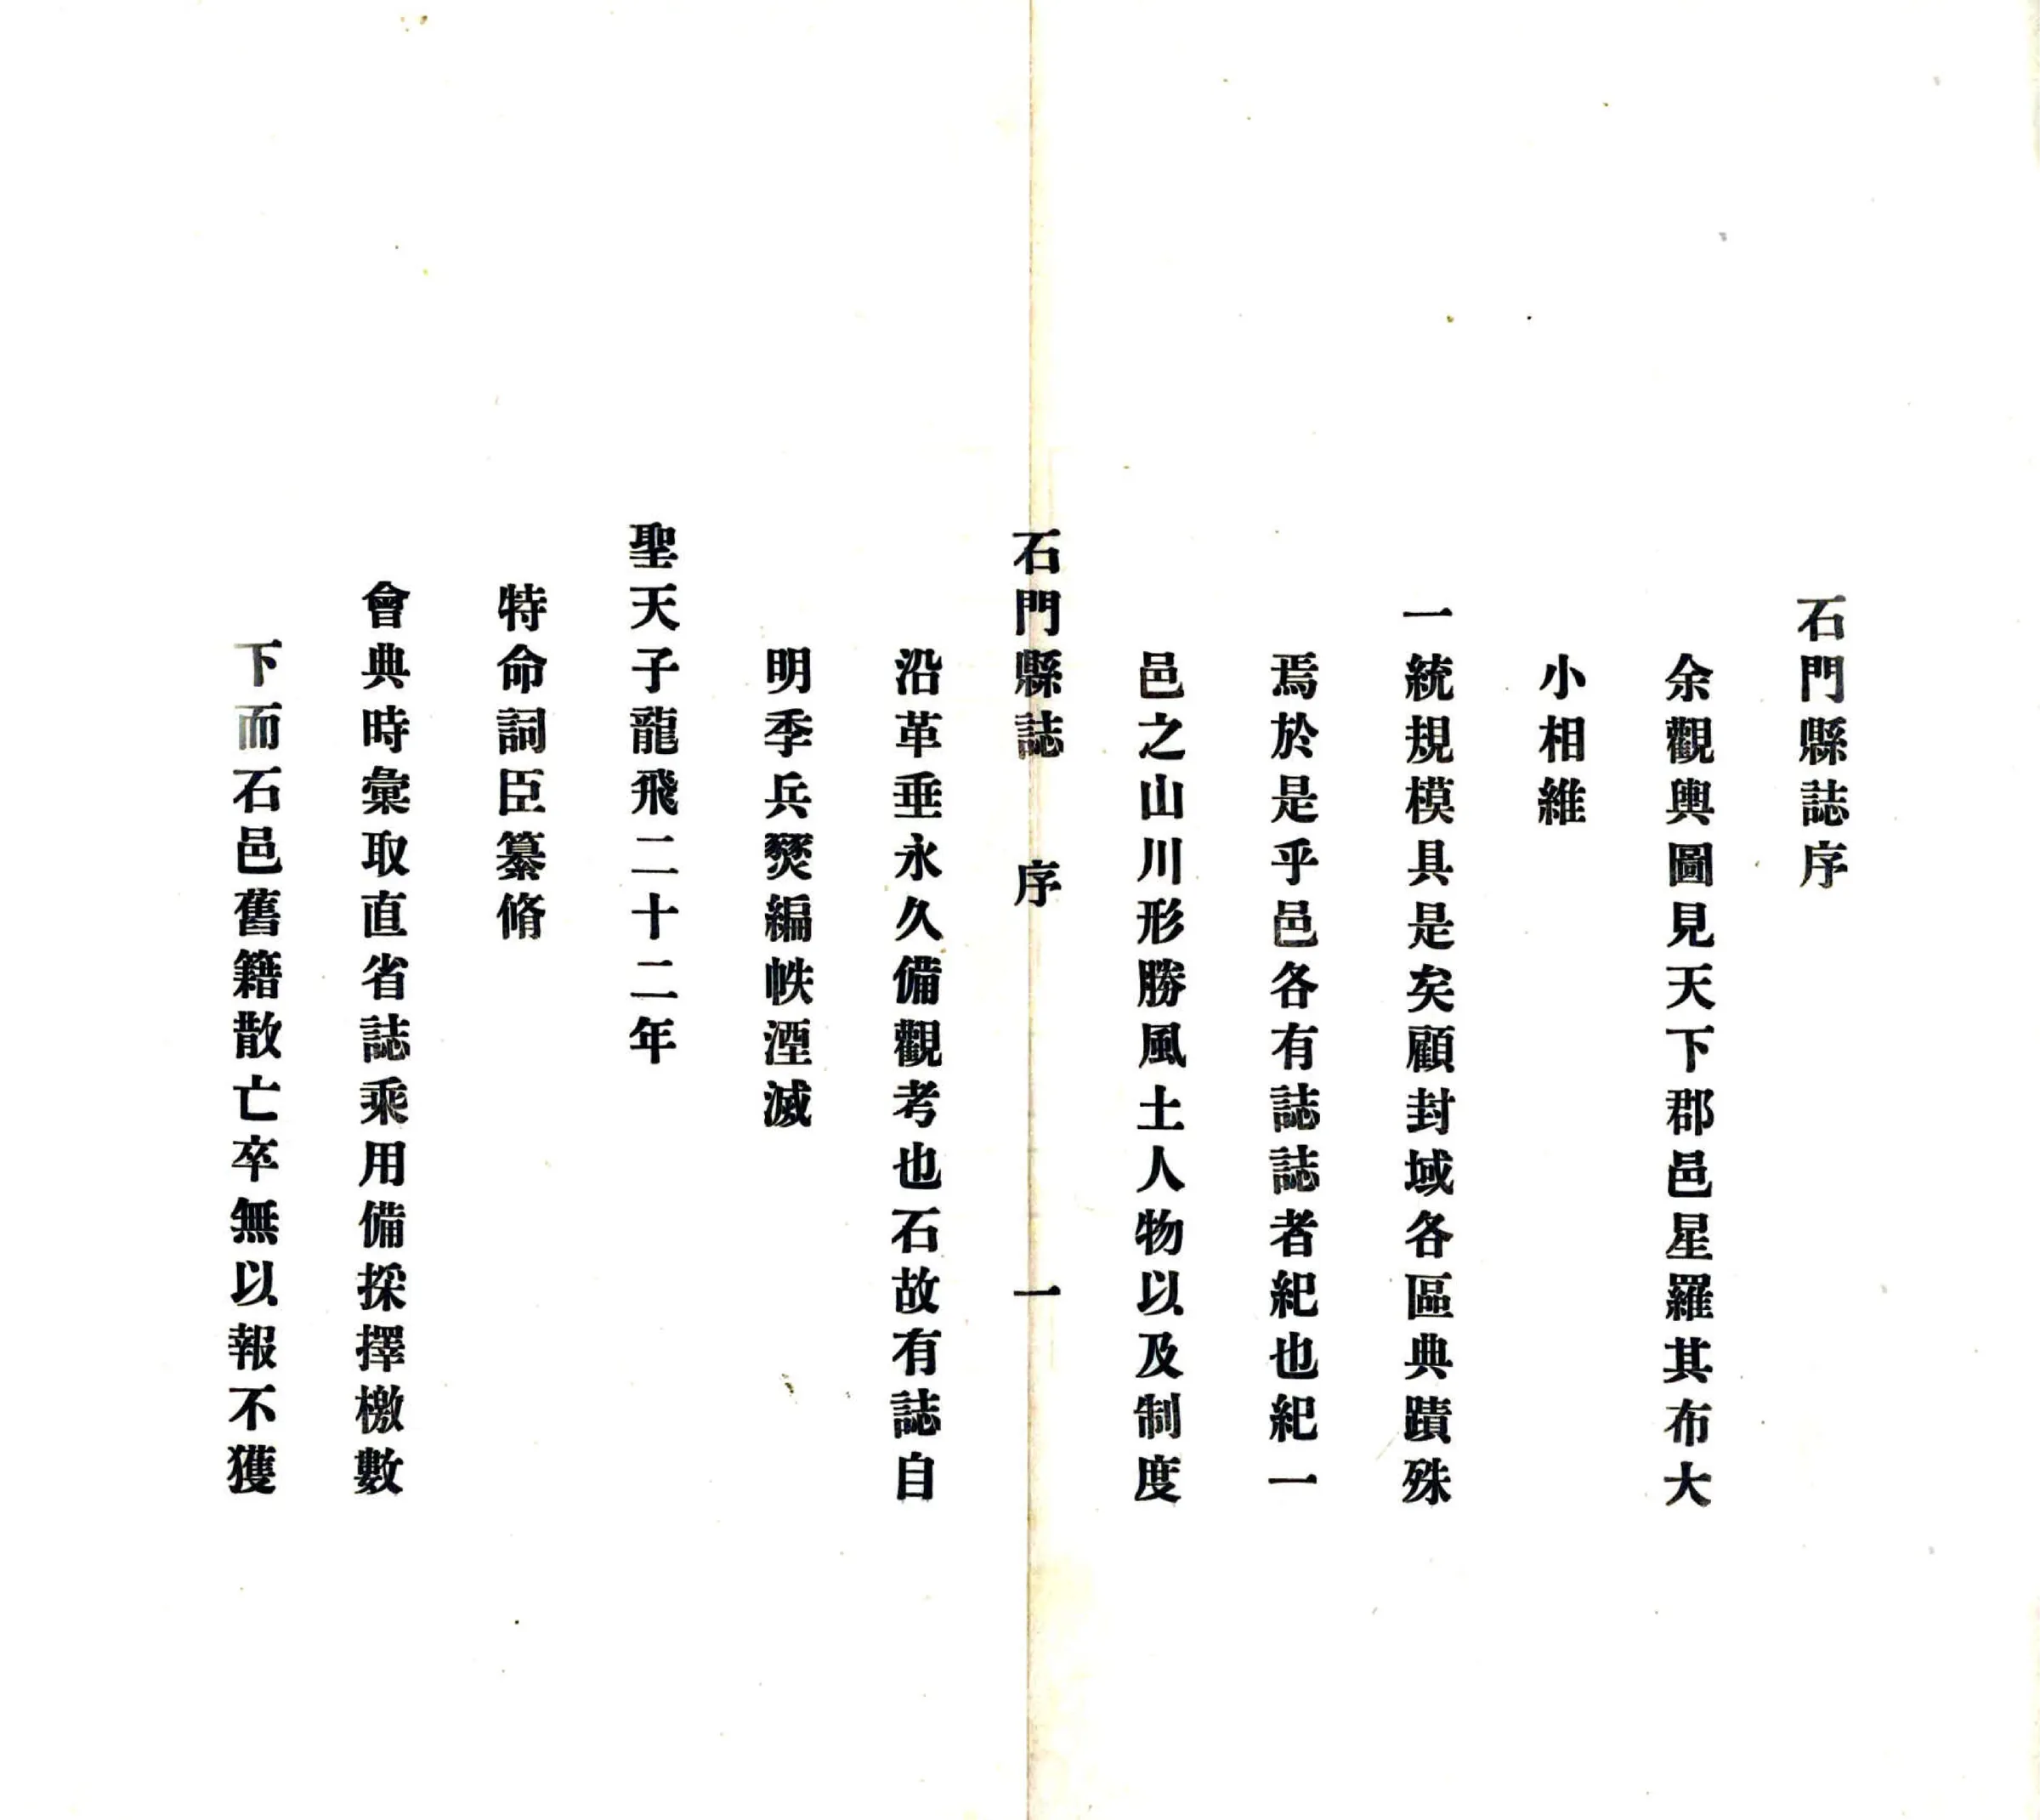 石門縣誌序
余觀輿圖見天下郡邑星羅其布大
小相維
一統規模具是矣顧封域各區典蹟殊
焉於是乎邑各有誌誌者紀也紀一
邑之山川形勝風土人物以及制度
石門縣誌 序 一
沿革垂永久備觀考也石故有誌自
明季兵燹編帙湮滅
聖天子龍飛二十二年
特命詞臣纂脩
會典時彙取直省誌乘用備採擇檄數
下而石邑舊籍散亡卒無以報不獲